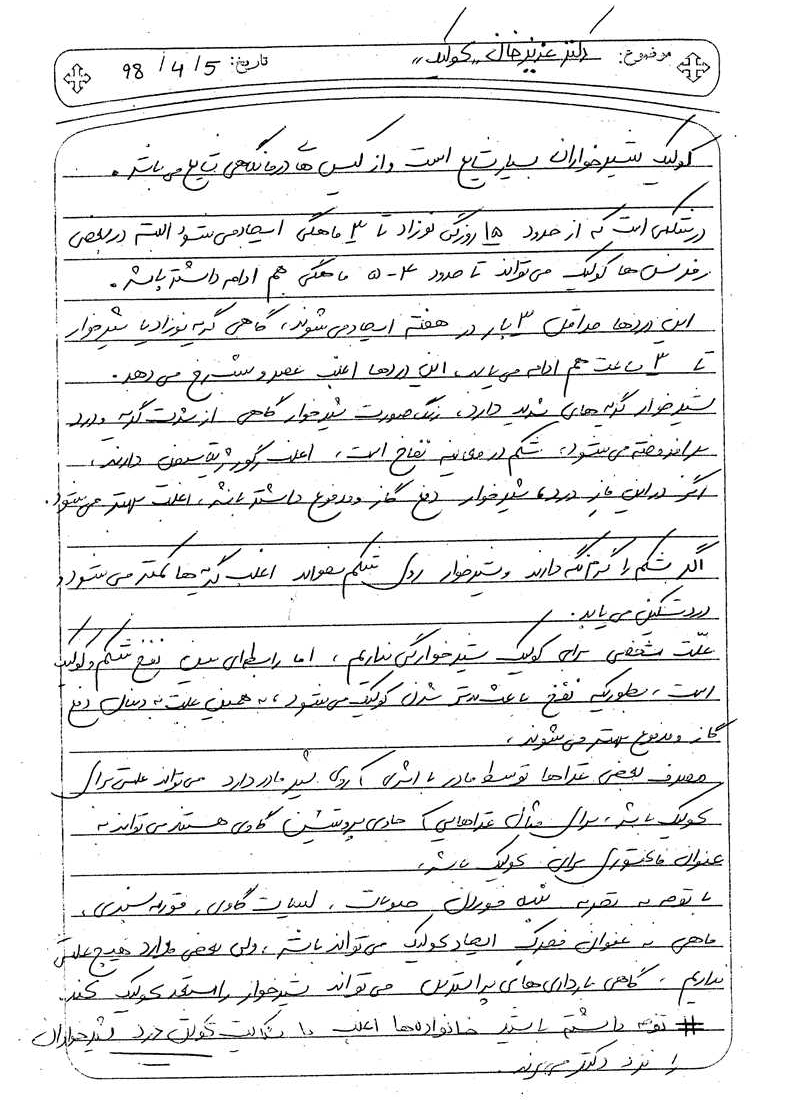 موضوع: دکتر عزیزخانی «کولیک» تاریخ: 98/4/5
کولیک شیرخواران بسیار شایع است و از کیس های درمانگاهی شایع می باشد.
درد شکمی است که از حدود ۱۵ روزگی نوزاد تا ۳ ماهگی ایجاد می شود البته در بعضی
رفرنس ها کولیک می تواند تا حدود ۴-۵ ماهگی هم ادامه داشته باشد.
این دردها حداقل ۳ بار در هفته ایجاد می شوند، گاهی گریه نوزاد یا شیرخوار
تا ۳ ساعت هم ادامه می یابد، این دردها اغلب عصر و شب رخ می دهد.
شیرخوار گریه های شدید دارد، رنگ صورت شیرخوار گاهی از شدت گریه و درد
برافروخته می شود، شکم در معاینه نفاخ است، اغلب دارند،
اگر در این فاز درد شیرخوار دفع گاز و مدفوع داشته باشد، اغلب بهتر می شود.
اگر شکم را گرم نگه دارند و شیرخوار روی شکم بخوابد اغلب گریه ها کمتر می شود و
درد تسکین می یابد.
علّت مشخصی برای کولیک شیرخوارگی نداریم، اما رابطه ای بین نفخ شکم و کولیک
است، بطوریکه نفخ باعث بدتر شدن کولیک می شود، به همین علت به دنبال دفع
گاز و مدفوع بهتر می شوند.
مصرف بعضی غذاها توسط مادر با اثری که روی شیر مادر دارد می تواند علتی برای
کولیک باشد، برای مثال غذاهایی که حاوی پروتئین گاوی هستند می تواند به
عنوان فاکتوری برای کولیک باشد.
با توجه به تغذیه خوردن حبوبات، لبنیات گاوی، قورمه سبزی،
ماهی به عنوان محرک ایجاد کولیک می تواند باشد، ولی بعضی موارد هیچ علتی
نداریم. گاهی بارداری های پراسترس می تواند شیرخوار را مستعد کولیک کند.
# توجه داشته باشید خانواده ها اغلب با شکایت گوش درد شیرخواران
را نزد دکتر می برند.